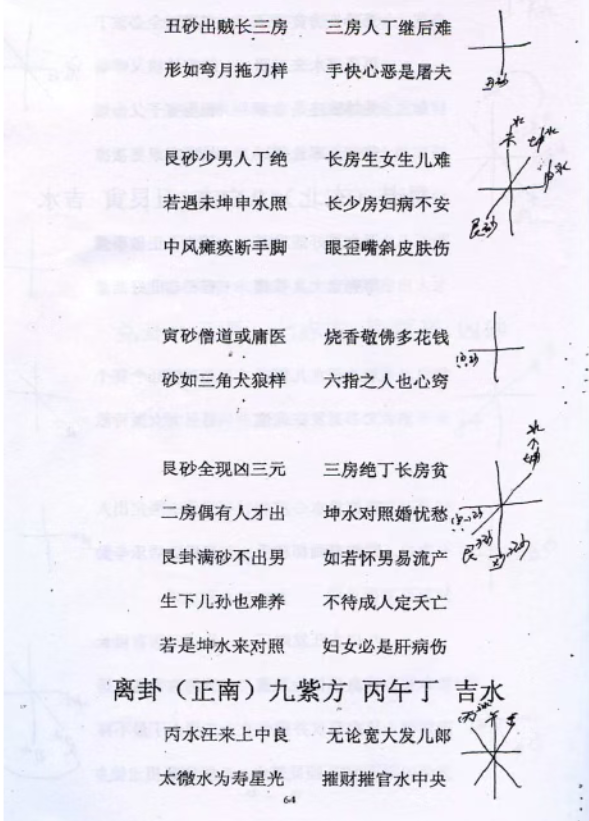 丑砂出贼长三房 三房人丁继后难
形如弯月拖刀样 手快心恶是屠夫
丑砂
艮砂少男人丁绝 长房生女生儿难
若遇未坤申水照 长少房妇病不安
中风瘫痪断手脚 眼歪嘴斜皮肤伤
未水
坤水
申水
艮砂
寅砂僧道或庸医 烧香敬佛多花钱
砂如三角犬狼样 六指之人也心窍
寅砂
艮砂全现凶三元 三房绝丁长房贫
二房偶有人才出 坤水对照婚忧愁
艮卦满砂不出男 如若怀男易流产
生下儿孙也难养 不待成人定夭亡
若是坤水来对照 妇女必是肝病伤
水
坤
寅砂
艮砂
丑砂
离卦（正南）九紫方 丙午丁 吉水
丙水汪来上中良 无论宽大发儿郎
太微水为寿星光 摧财摧官水中央
丙 午 丁
64